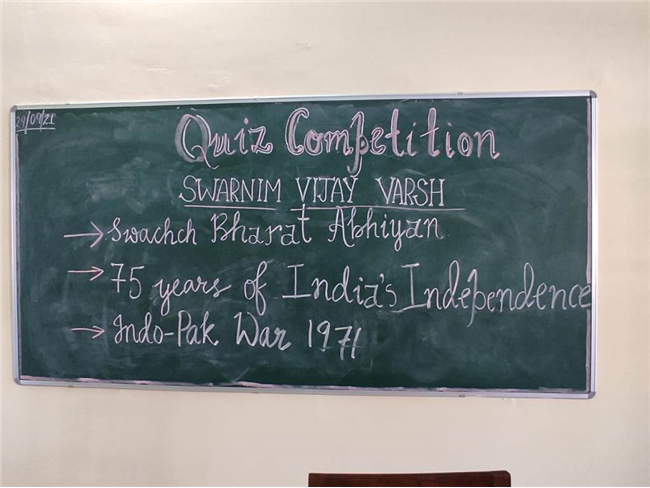 29/09/21
Quiz Competition
SWARNIM VIJAY VARSH
→ Swachch Bharat Abhiyan
→ 75 years of India's Independence
→ Indo-Pak War 1971